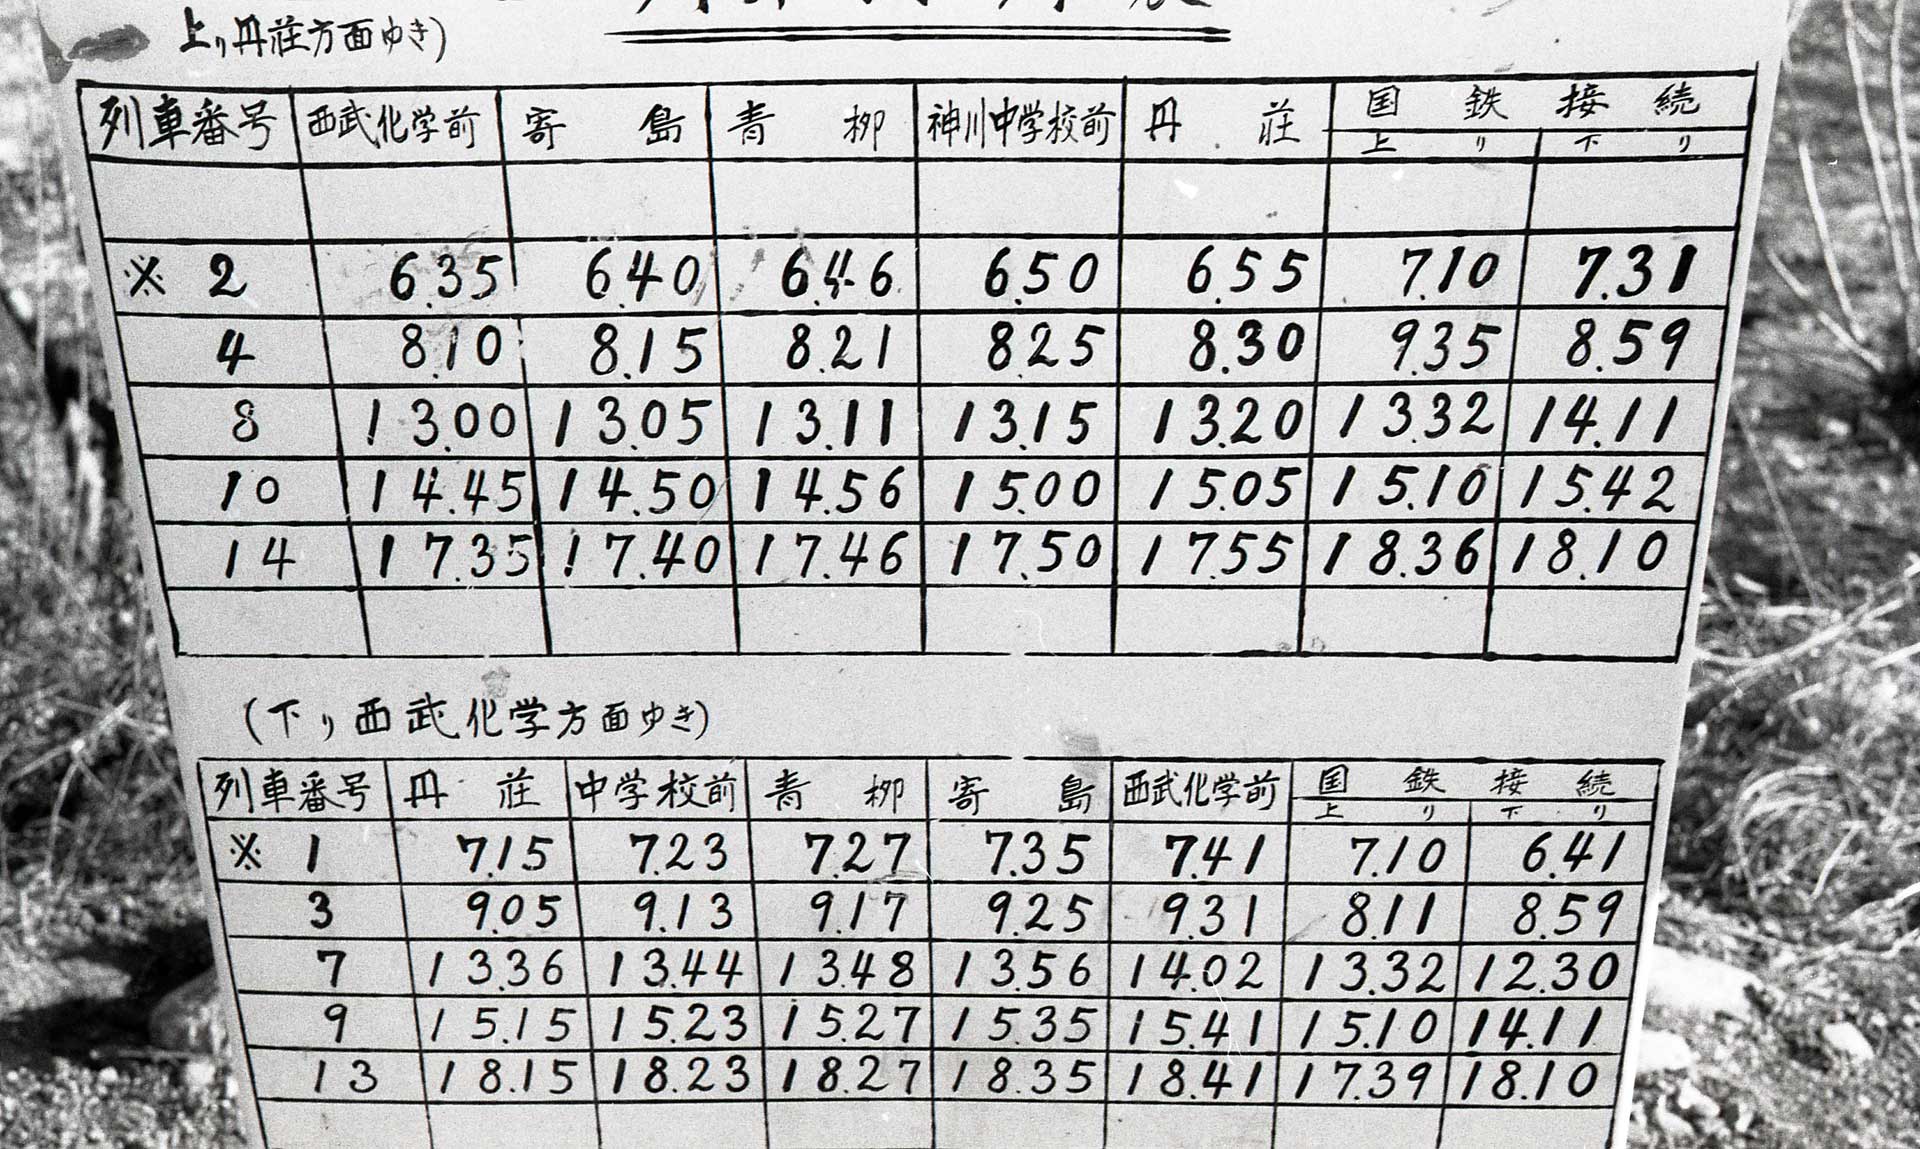 上り丹荘方面ゆき)
列車番号 西武化学前 寄島 青柳 神川中学校前 丹荘 国鉄接続
上り 下り
※ 2 6.35 6.40 6.46 6.50 6.55 7.10 7.31
4 8.10 8.15 8.21 8.25 8.30 9.35 8.59
8 13.00 13.05 13.11 13.15 13.20 13.32 14.11
10 14.45 14.50 14.56 15.00 15.05 15.10 15.42
14 17.35 17.40 17.46 17.50 17.55 18.36 18.10
(下り西武化学方面ゆき)
列車番号 丹荘 中学校前 青柳 寄島 西武化学前 国鉄接続
上り 下り
※ 1 7.15 7.23 7.27 7.35 7.41 7.10 6.41
3 9.05 9.13 9.17 9.25 9.31 8.11 8.59
7 13.36 13.44 13.48 13.56 14.02 13.32 12.30
9 15.15 15.23 15.27 15.35 15.41 15.10 14.11
13 18.15 18.23 18.27 18.35 18.41 17.39 18.10